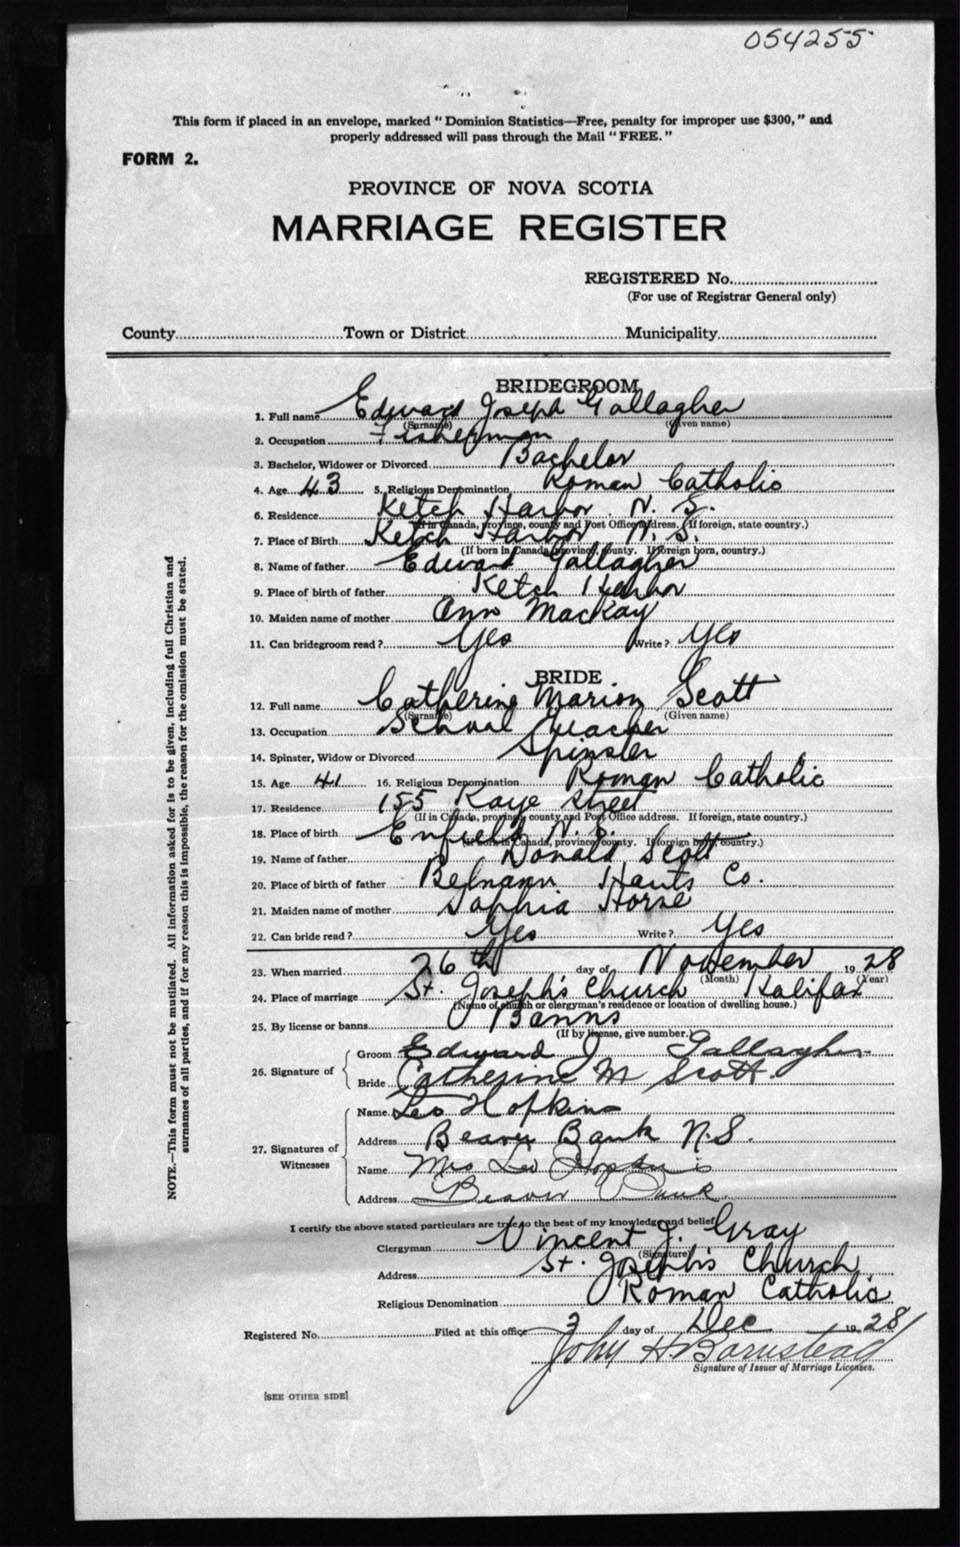 054255
This form if placed in an envelope, marked "Dominion Statistics—Free, penalty for improper use $300," and
properly addressed will pass through the Mail "FREE."
FORM 2.
PROVINCE OF NOVA SCOTIA
MARRIAGE REGISTER
REGISTERED No.
(For use of Registrar General only)
County Town or District Municipality
BRIDEGROOM
1. Full name Edward Joseph Gallagher
(Surname) (Given name)
2. Occupation Fisherman
3. Bachelor, Widower or Divorced Bachelor
4. Age 43 5. Religious Denomination Roman Catholic
6. Residence Ketch Harbor N. S.
(If in Canada, province, county and Post Office address. If foreign, state country.)
7. Place of Birth Ketch Harbor N. S.
(If born in Canada, province, county. If foreign born, country.)
8. Name of father Edward Gallagher
9. Place of birth of father Ketch Harbor
10. Maiden name of mother Ann MacKay
11. Can bridegroom read? Yes Write? Yes
BRIDE
12. Full name Catherine Marion Scott
(Surname) (Given name)
13. Occupation School Teacher
14. Spinster, Widow or Divorced Spinster
15. Age 41 16. Religious Denomination Roman Catholic
17. Residence 155 Kaye Street
(If in Canada, province, county and Post Office address. If foreign, state country.)
18. Place of birth Enfield N. S.
(If born in Canada, province, county. If foreign born, country.)
19. Name of father Donald Scott
20. Place of birth of father Hants Co.
21. Maiden name of mother Sophia Horne
22. Can bride read? Yes Write? Yes
23. When married 26th day of November 1928
(Month) (Year)
24. Place of marriage St. Joseph's Church Halifax
(Name of church or clergyman's residence or location of dwelling house.)
25. By license or banns Banns
(If by license, give number.)
26. Signature of
Groom Edward J Gallagher
Bride Catherine M Scott.
27. Signatures of Witnesses
Name Leo Hopkins
Address Beaver Bank N.S.
Name Mrs Leo Hopkins
Address Beaver Bank
I certify the above stated particulars are true to the best of my knowledge and belief
Clergyman Vincent J. Gray
(Signature)
Address St. Joseph's Church
Religious Denomination Roman Catholic
Registered No. Filed at this office 3 day of Dec 1928
John H Barnstead
Signature of Issuer of Marriage Licenses.
[SEE OTHER SIDE]
NOTE.—This form must not be mutilated. All information asked for is to be given, including full Christian and
surnames of all parties, and if for any reason this is impossible, the reason for the omission must be stated.